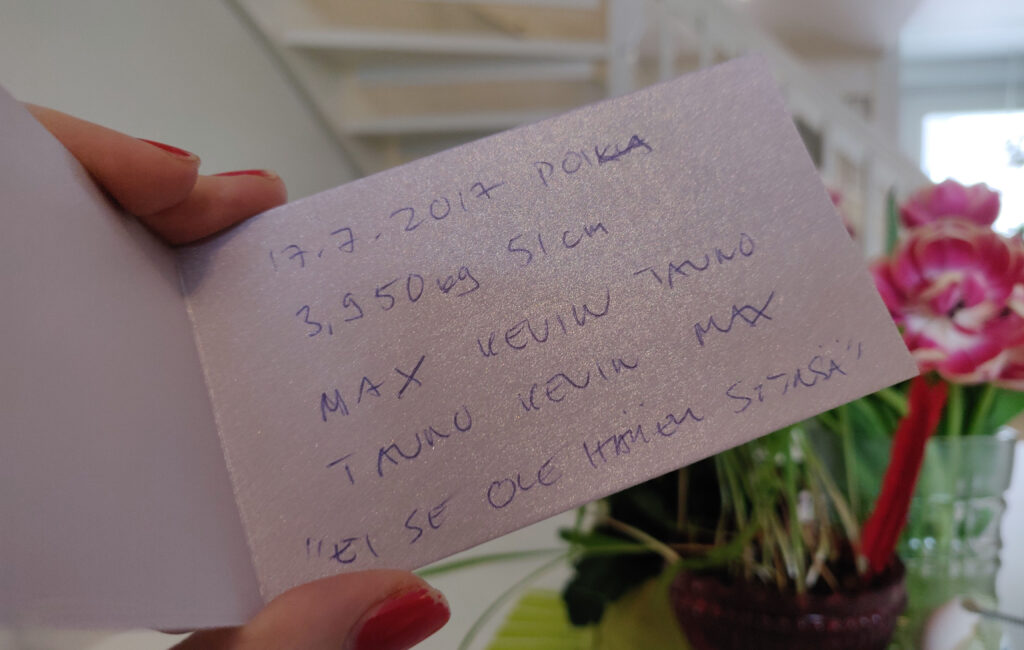 17.7.2017 POIKA
3,950kg 51 cm
MAX KEVIN TAUNO
TAUNO KEVIN MAX
"EI SE OLE HÄNEN